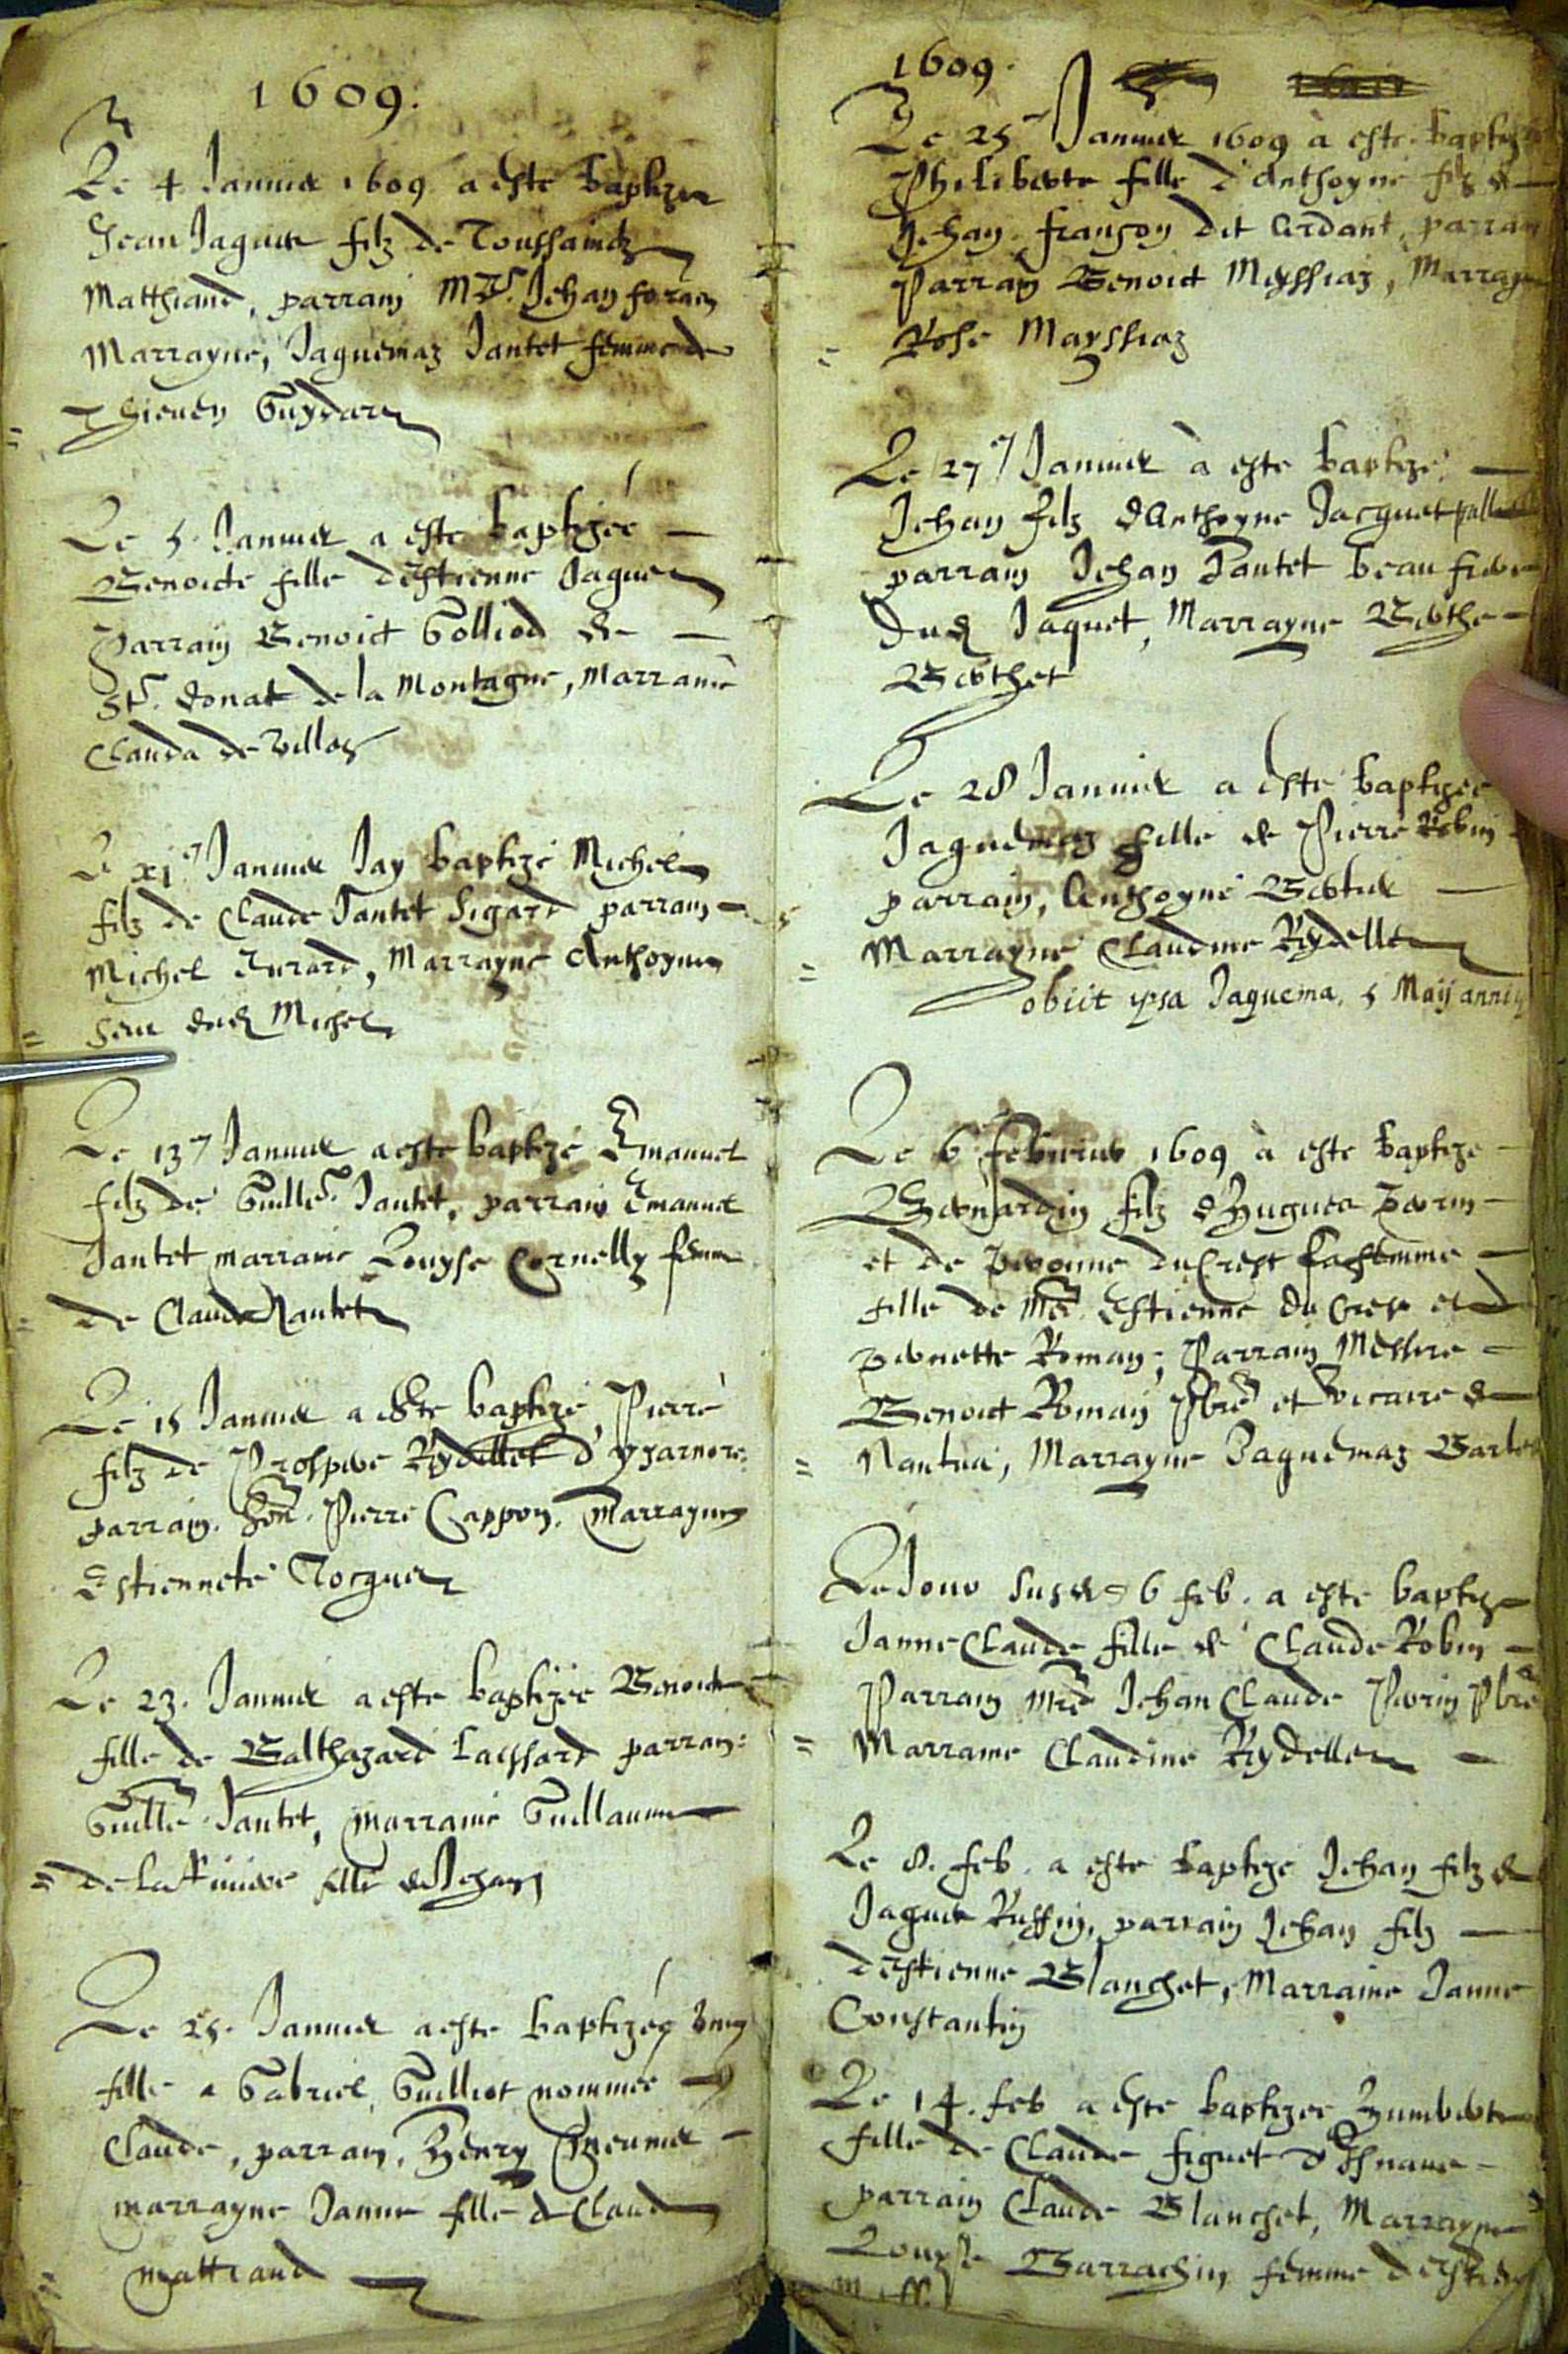 1609.
Le 4 Januier 1609 a este baptizer
Jean Jaques filz de Toussaindz
Matthiand, parrain Mre. Jehan
Marrayne, Jaquemaz Jantet femme de
Thieuen Guydard
Le 5. Januier a este baptizée
Benoicte fille destienne Jaquer
Parrain Benoict Golliod de
St. Donat de la Montagne, Marraine
Clauda de Villaz
Le xj Januier Jay baptizé Michel
filz de Claude Jantet Sigard parrain
Michel Jurard, Marrayne Anthoyne
seur dud Michel
Le 13 Januier a este baptizé Emanuel
filz de Guille. Jantet, parrain Emanuel
Jantet marraine Louyse Cornelly femme
de Claude Nantet
Le 15 Januier a este baptizé Pierre
filz de Prosper Rydellet d'yzarnore
parrain. hon. Pierre Cappon, Marrayne
Estiennete Tocquer
Le 23. Januier a este baptizée Benoicte
fille de Balthazard Laissard parrain
Guille Jantet, marraine Guillaume
de la Riuiere fille de Jehan
Le 25. Januier a este baptizée vne
fille a Gabriel Guilliot nommée
Claude, parrain, Henry Meunier
marrayne Janne fille de Claude
mattiand
1609.
Le 25 Januier 1609 à este baptizée
Philiberte fille d'Anthoyne filz de
Jehan françon dit Ardant, parrain
Parrain Benoict Meyssiaz, Marrayne
Rose Mayssiaz
Le 27 Januier à este baptizé
Jehan filz d'Anthoyne Jacquet
parrain Jehan Jantet beau frere
dud Jaquet, Marrayne Berthe
Berthet
Le 28 Januier a este baptizée
Jaquemaz fille de Pierre Robin
parrain, Anthoyne Bertier
Marrayne Claudine Rydellet
obiit ipsa Jaquema, 5 Maij anni
Le 6 feburier 1609 à este baptizé
Bernardin filz d'Hugues Perrin
et de Peronne du Crest sa femme
fille de Mre Estienne du Crest et d
pernette Roman, Parrain Messire
Benoict Roman Pbre et vicaire de
Nantua, Marrayne Jaquemaz
Le Jour susd 6 feb. a este baptizé
Janne Claude fille de Claude Robin
Parrain Mre Jehan Claude Perrin Pbre
Marraine Claudine Rydellet
Le 8. feb. a este baptizé Jehan filz de
Jaques Ruffin, parrain Jehan filz
destienne Blanchet, Marraine Janne
Constantin
Le 14. feb a este baptizée Humberte
fille de Claude figuet
parrain Claude Blanchet, Marrayne
Louyse Barrachin femme destienne